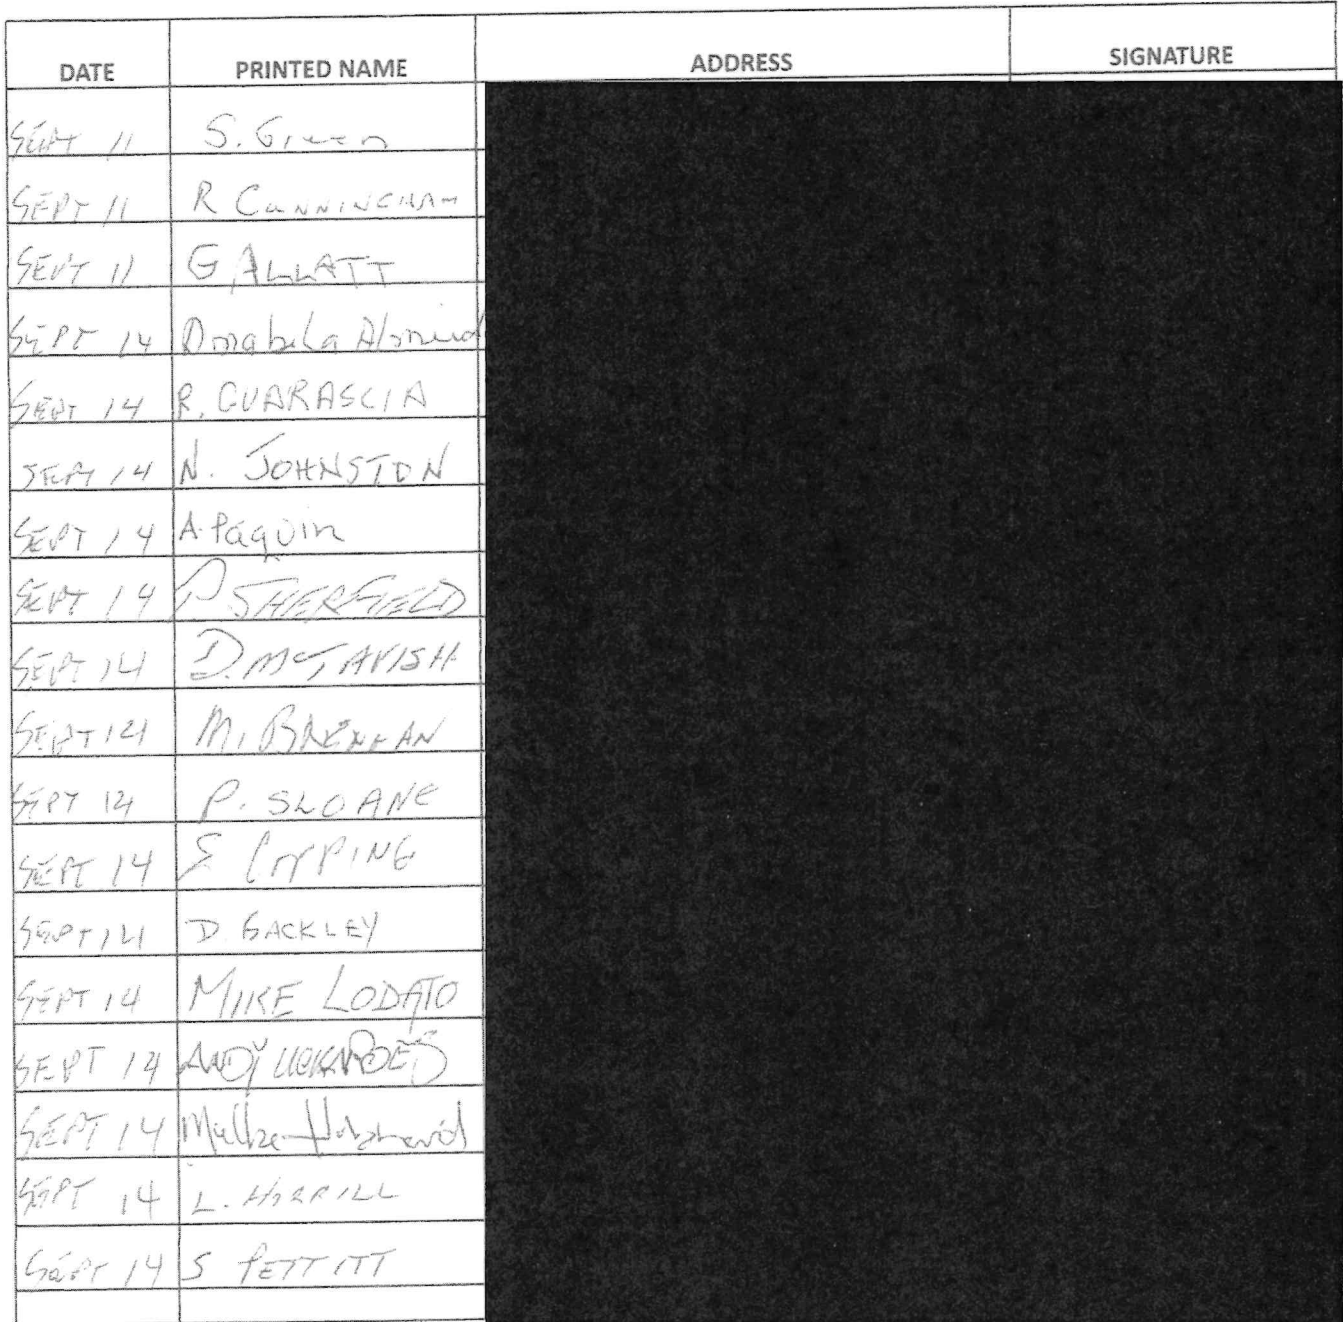 DATE PRINTED NAME ADDRESS SIGNATURE
SEPT 11 S. Green
SEPT 11 R CUNNINGHAM
SEPT 11 G ALLATT
SEPT 14
SEPT 14 R. GUARASCIA
SEPT 14 N. JOHNSTON
SEPT 14 A. Paquin
SEPT 14 P SHERFIELD
SEPT 14 D. MCTAVISH
SEPT 14 M. BRENNAN
SEPT 14 P. SLOANE
SEPT 14 COPPING
SEPT 14 D. GACKLEY
SEPT 14 MIKE LODATO
SEPT 14 ANDY
SEPT 14
SEPT 14 L.
SEPT 14 S PETTITT